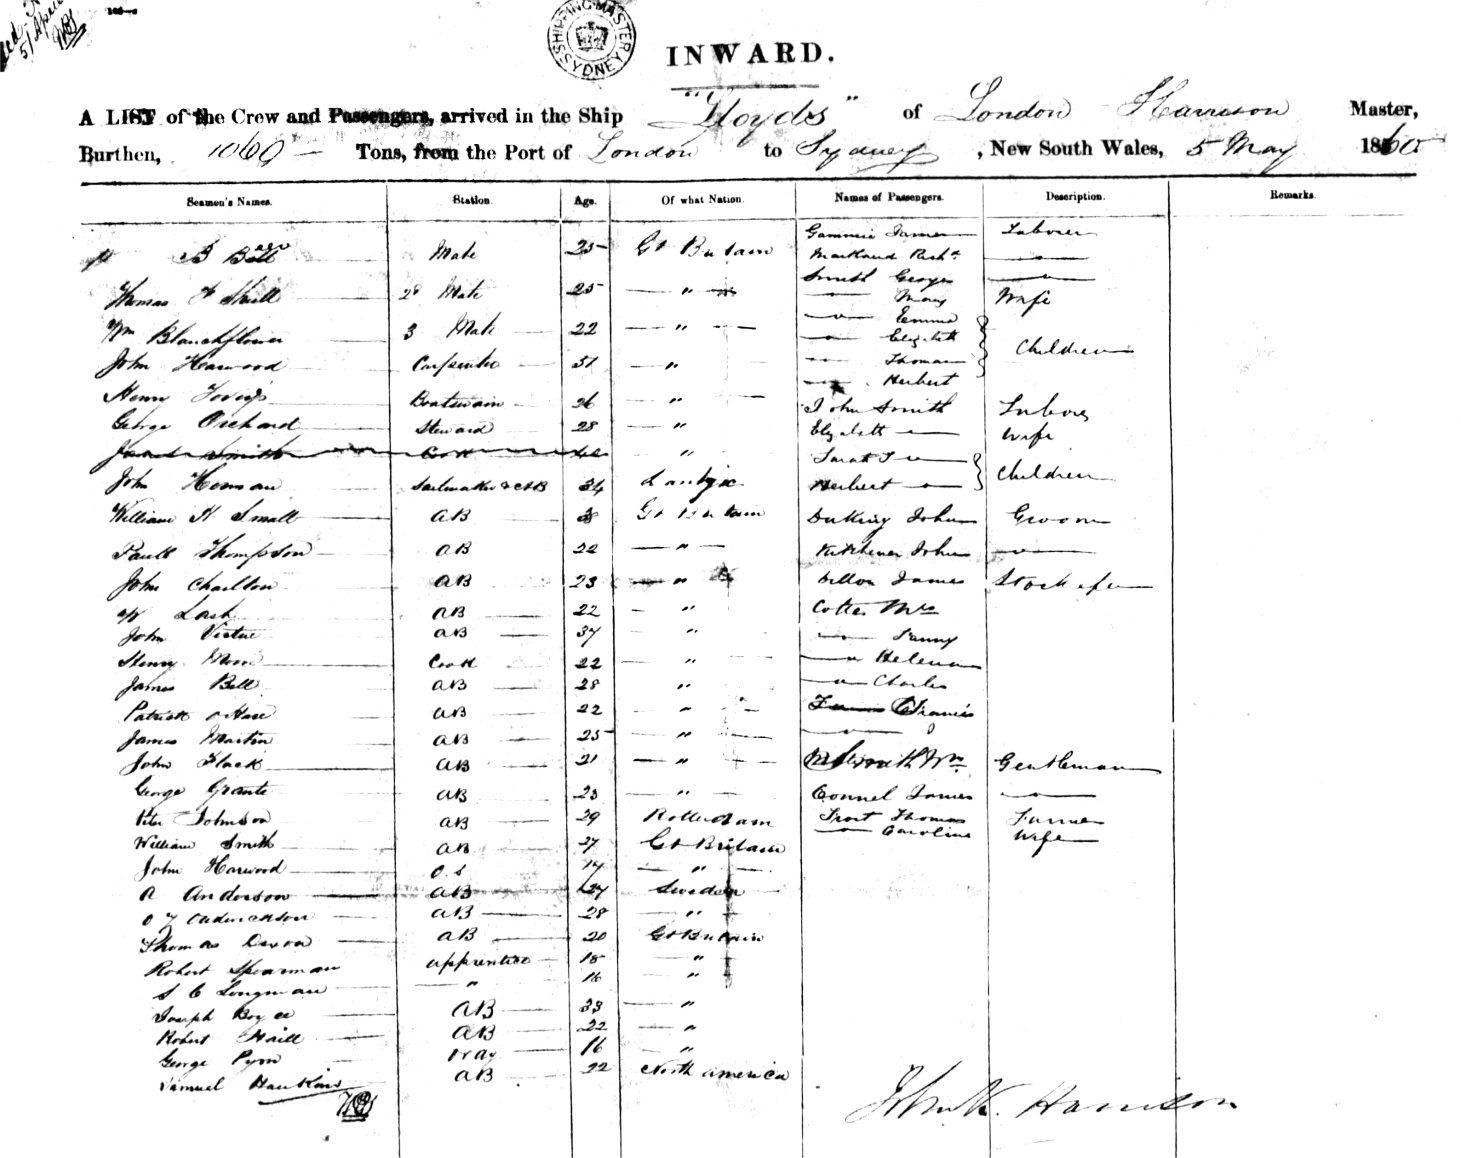 SHIPPING MASTER SYDNEY
INWARD.
A LIST of the Crew and Passengers, arrived in the Ship "Lloyds" of London Harrison Master,
Burthen, 1069 Tons, from the Port of London to Sydney, New South Wales, 5 May 1860
Seamen's Names. Station. Age. Of what Nation. Names of Passengers. Description. Remarks.
Gammie James Laborer
B Mate 25 Gt Britain Markand —"—
Smith George —"—
Thomas 2d Mate 25 —"— —"— Mary Wife
Wm Blanchflower 3 Mate 22 —"— —"— Emma
—"— Elizabeth
John Harwood Carpenter 51 —"— —"— Thomas Children
—"— Herbert
Henry Boatswain 26 —"— John Smith Labor
George Orchard Steward 28 —"— Elizabeth —"— Wife
James Smith Cook —"— Sarah J —"—
John Sailmaker & AB 34 Herbert —"— Children
William H Small AB 38 Gt Britain John Groom
Paull Thompson AB 22 —"— Kitchener John —"—
John Charlton AB 23 —"— Dillon James
Lash AB 22 —"— Mrs
John Virtue AB 37 —"— —"— Fanny
Henry Cook 22 —"— —"— Helena
James Bell AB 28 —"— —"— Charles
Patrick O Hare AB 22 —"— Francis
James Martin AB 25 —"— —"—
John Flack AB 21 —"— Wm Gentleman
George Grante AB 23 —"— Connel James —"—
Peter Johnson AB 29 Rotterdam Frost Thomas Farmer
—"— Caroline Wife
William Smith AB 27 Gt Britain
John Harwood O S 17 —"—
A Anderson AB 27 Sweden
AB 28 —"—
Thomas AB 20 Gt Britain
Robert Spearman apprentice 18 —"—
S C Longman —"— 16 —"—
Joseph Boyce AB 33 —"—
Robert AB 22 —"—
George 16 —"—
Samuel Hawkins AB 22 North America
John K. Harrison